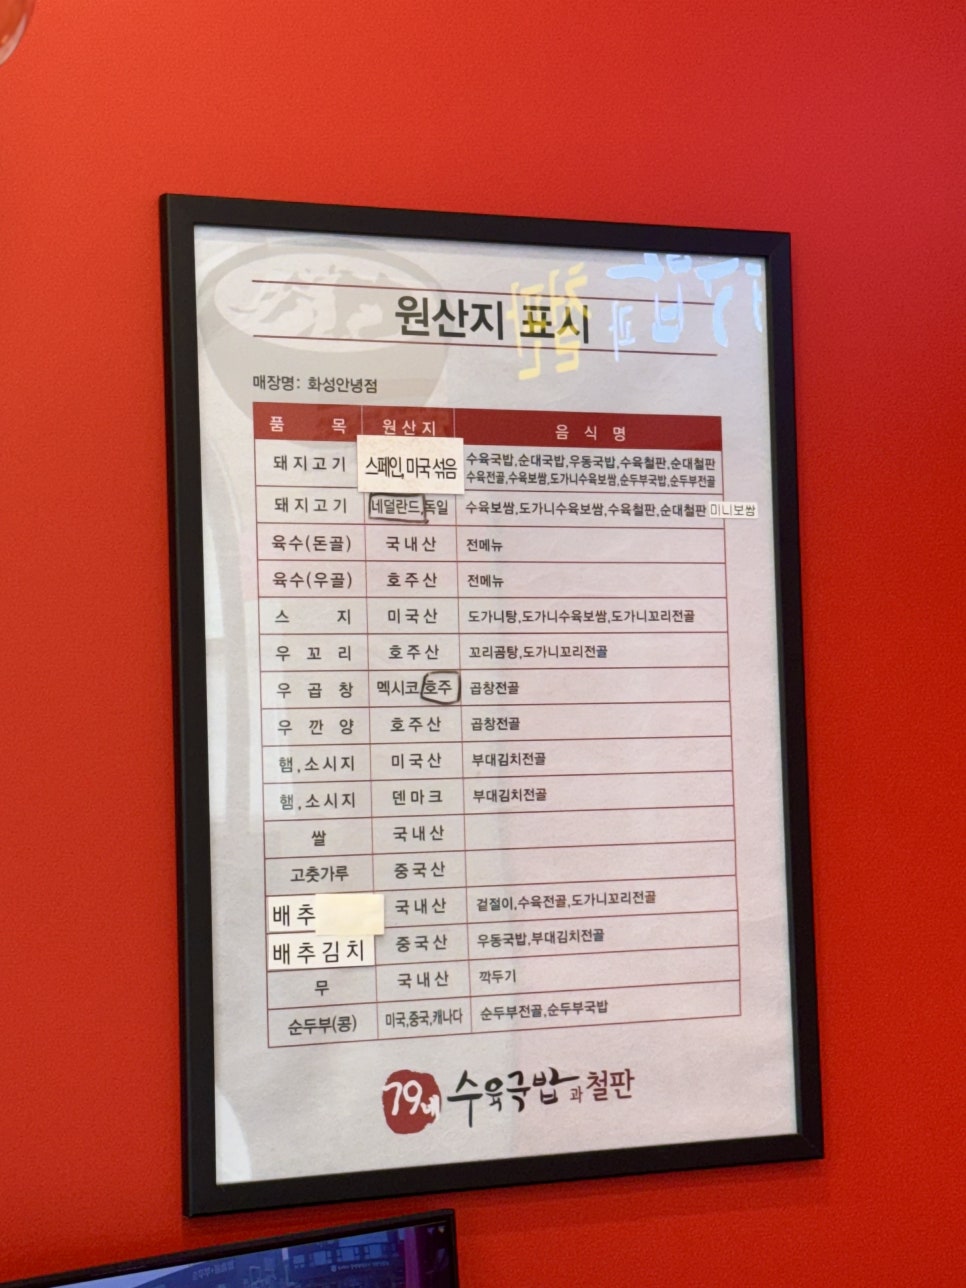 원산지 표시
매장명: 화성안녕점
품 목 원산지 음식명
돼지고기 스페인,미국 섞음 수육국밥,순대국밥,우동국밥,수육철판,순대철판
수육전골,수육보쌈,도가니수육보쌈,순두부국밥,순두부전골
돼지고기 네덜란드,독일 수육보쌈,도가니수육보쌈,수육철판,순대철판 미니보쌈
육수(돈골) 국내산 전메뉴
육수(우골) 호주산 전메뉴
스 지 미국산 도가니탕,도가니수육보쌈,도가니꼬리전골
우꼬리 호주산 꼬리곰탕,도가니꼬리전골
우곱창 멕시코,호주 곱창전골
우깐양 호주산 곱창전골
햄,소시지 미국산 부대김치전골
햄,소시지 덴마크 부대김치전골
쌀 국내산
고춧가루 중국산
배추 국내산 겉절이,수육전골,도가니꼬리전골
배추김치 중국산 우동국밥,부대김치전골
무 국내산 깍두기
순두부(콩) 미국,중국,캐나다 순두부전골,순두부국밥
79네 수육국밥과철판